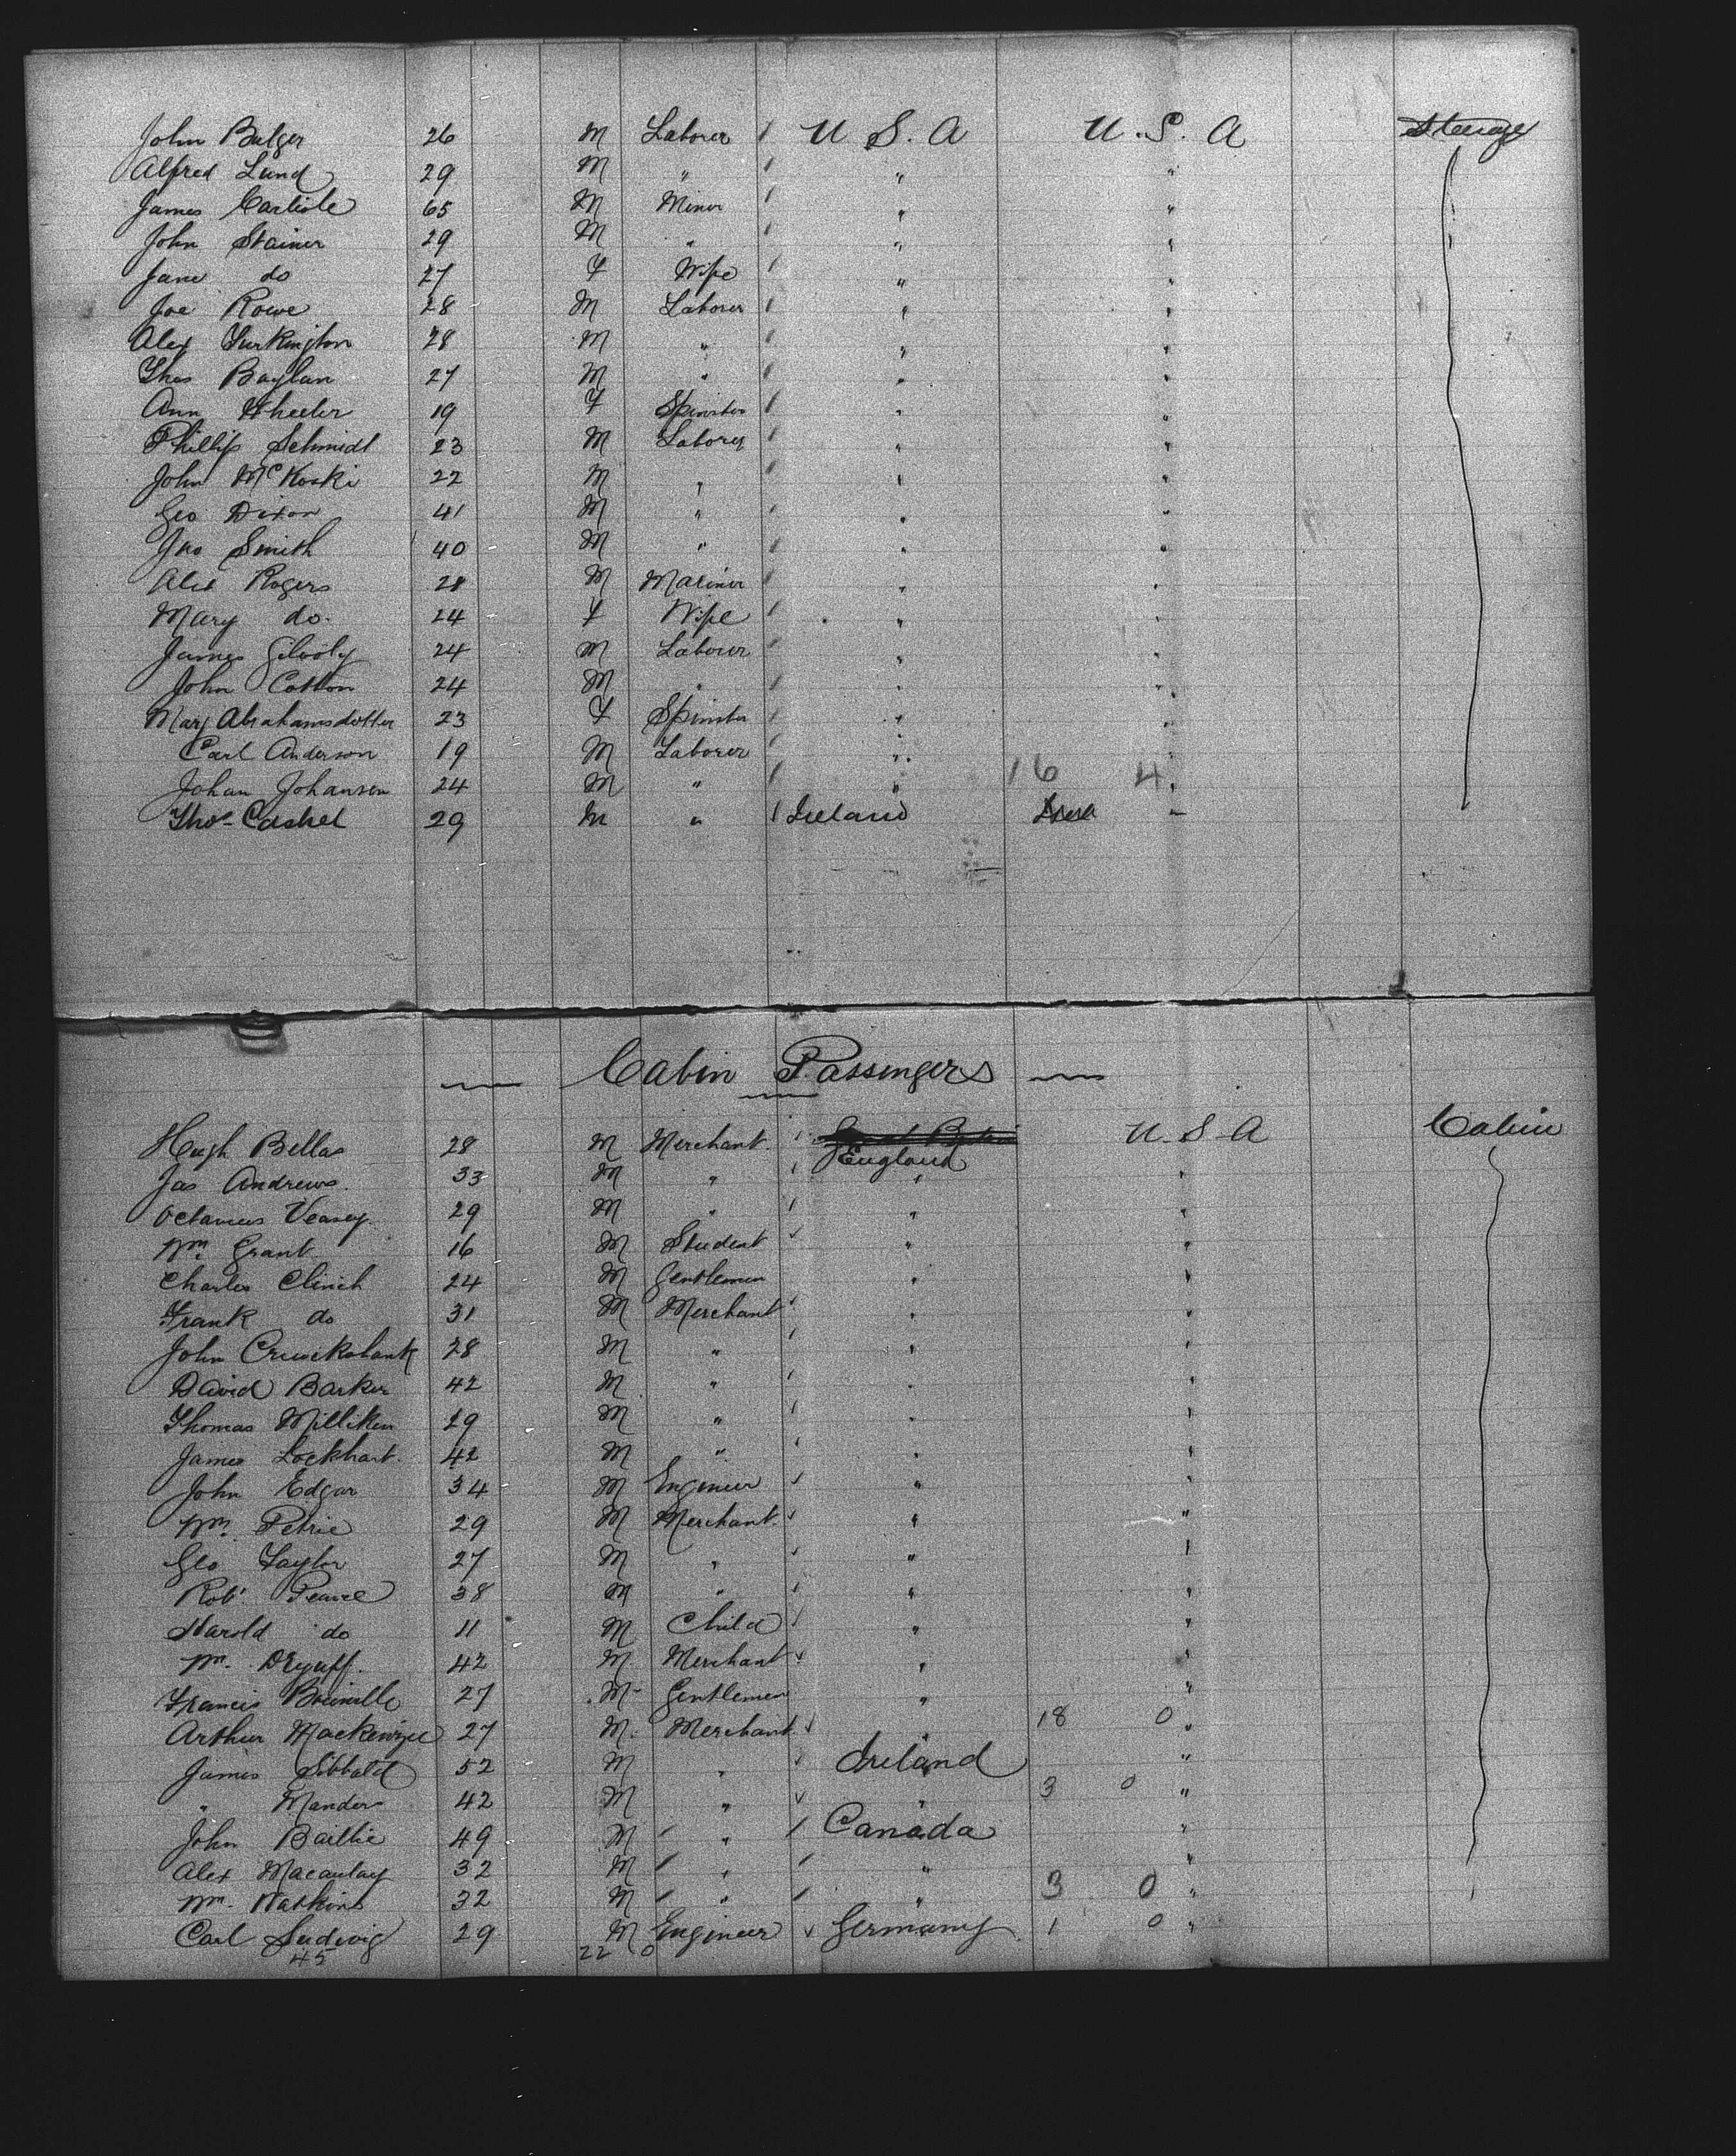 John Bulger 26 M Laborer U S. A U. S. A Steerage
Alfred Lund 29 M " " "
James Carlisle 65 M Miner " "
John Stainer 29 M " " "
Jane do 27 F Wife " "
Joe Rowe 28 M Laborer " "
Alex Turkington 28 M " " "
Thos Boylan 27 M " " "
Ann Wheeler 19 F Spinster " "
Phillip Schmidt 23 M Laborer " "
John McKoski 22 M " " "
Geo Dixon 41 M " " "
Jno Smith 40 M " " "
Alex Rogers 28 M Mariner " "
Mary do. 24 F Wife " "
James Gilooly 24 M Laborer " "
John Cotton 24 M " " "
Mary Abrahamsdotter 23 F Spinster " "
Carl Anderson 19 M Laborer " "
Johan Johansen 24 M " " 16 4 "
Thos Cashel 29 M " Ireland
Cabin Passengers
Hugh Bellas 28 M Merchant Great Britain U. S. A Cabin
England
Jas Andrews. 33 M " " "
Octavius Veasey. 29 M " " "
Wm. Grant 16 M Student " "
Charles Clinch 24 M Gentlemen " "
Frank do 31 M Merchant " "
John Cruickshank 28 M " " "
David Barker 42 M " " "
Thomas Milliken 29 M " " "
James Lockhart. 42 M " " "
John Edgar 34 M Engineer " "
Wm. Petrie 29 M Merchant. " "
Geo Taylor 27 M " " "
Robt Pearce 38 M " " "
Harold do 11 M Child " "
Wm. 42 M Merchant " "
Francis 27 M Gentlemen " "
Arthur Mackenzie 27 M. Merchant " 18 0 "
James Sibbald 52 M " Ireland "
" Manders 42 M " " 3 0 "
John Baillie 49 M " Canada "
Alex Macaulay 32 M " " "
Wm. Watkins 32 M " " 3 0 "
Carl Ludwig 29 M Engineer Germany 1 0 "
45 22 0